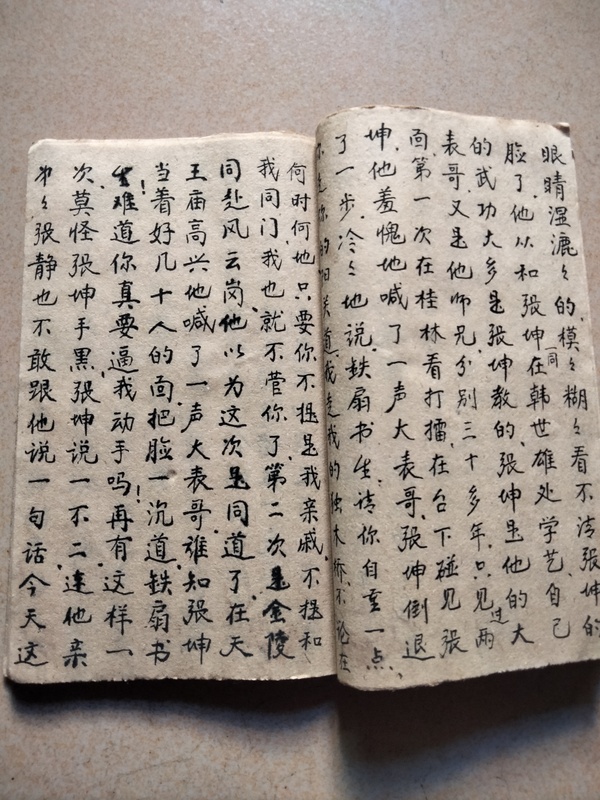 眼睛湿漉々的,模々糊々看不清张坤的
脸了,他以和张坤一同在韩世雄处学艺,自己
的武功大多是张坤教的,张坤是他的大
表哥,又是他师兄,分别三十多年,只见过两
面,第一次在桂林看打擂,在台下碰见张
坤,他羞愧地喊了一声大表哥,张坤倒退
了一步,冷々地说,铁扇书生,请你自重一点,
你走你的阳关道,我走我的独木桥,不论在
何时何地只要你不提是我亲戚,不提和
我同门,我也就不管你了,第二次是金陵
同赴风云岗,他以为这次是同道了,在天
王庙高兴地喊了一声大表哥,谁知张坤
当着好几十人的面,把脸一沉道,铁扇书
生!难道你真要逼我动手吗!再有这样一
次,莫怪张坤手黑,张坤说一不二,连他亲
弟々张静也不敢跟他说一句话,今天这